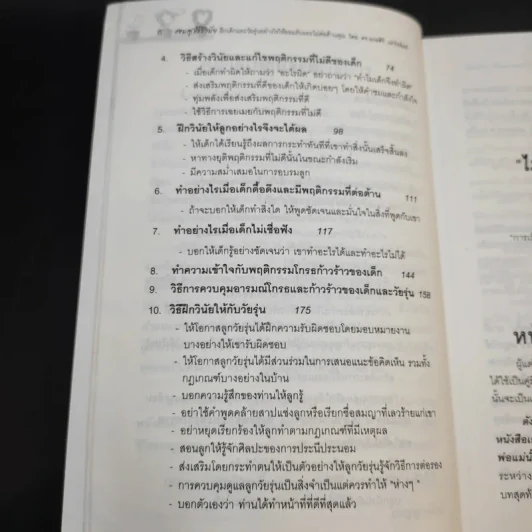 4. วิธีสร้างวินัยและแก้ไขพฤติกรรมที่ไม่ดีของเด็ก 74
- เมื่อเด็กทำผิดให้ถามว่า "อะไรผิด" อย่าถามว่า "ทำไมเด็กจึงทำผิด"
- ส่งเสริมพฤติกรรมที่ดีของเด็กให้เกิดบ่อยๆ โดยให้คำชมและกำลังใจ
- ทุ่มพลังเพื่อส่งเสริมพฤติกรรมที่ดี
- ใช้วิธีการเฉยเมยกับพฤติกรรมที่ไม่ดี
5. ฝึกวินัยให้ลูกอย่างไรจึงจะได้ผล 98
- ให้เด็กได้เรียนรู้ถึงผลการกระทำทันทีที่เขาทำสิ่งนั้นเสร็จสิ้นลง
- หาทางยุติพฤติกรรมที่ไม่ดีนั้นในขณะกำลังเริ่ม
- มีความสม่ำเสมอในการอบรมลูก
6. ทำอย่างไรเมื่อเด็กดื้อดึงและมีพฤติกรรมที่ต่อต้าน 111
- ถ้าจะบอกให้เด็กทำสิ่งใด ให้พูดชัดเจนและมั่นใจในสิ่งที่พูดกับเขา
7. ทำอย่างไรเมื่อเด็กไม่เชื่อฟัง 117
- บอกให้เด็กรู้อย่างชัดเจนว่า เขาทำอะไรได้และทำอะไรไม่ได้
8. ทำความเข้าใจกับพฤติกรรมโกรธก้าวร้าวของเด็ก 144
9. วิธีการควบคุมอารมณ์โกรธและก้าวร้าวของเด็กและวัยรุ่น 158
10. วิธีฝึกวินัยให้กับวัยรุ่น 175
- ให้โอกาสลูกวัยรุ่นได้ฝึกความรับผิดชอบโดยมอบหมายงาน
บางอย่างให้เขารับผิดชอบ
- ให้โอกาสลูกวัยรุ่นได้มีส่วนร่วมในการเสนอแนะข้อคิดเห็น รวมทั้ง
กฎเกณฑ์บางอย่างในบ้าน
- บอกความรู้สึกของท่านให้ลูกรู้
- อย่าใช้คำพูดคล้ายสาปแช่งลูกหรือเรียกชื่อสมญาที่เลวร้ายแก่เขา
- อย่าหยุดเรียกร้องให้ลูกทำตามกฎเกณฑ์ที่มีเหตุผล
- สอนลูกให้รู้จักศิลปะของการประนีประนอม
- ส่งเสริมโดยกระทำตนให้เป็นตัวอย่างให้ลูกวัยรุ่นรู้จักวิธีการต่อรอง
- การควบคุมดูแลลูกวัยรุ่นเป็นสิ่งจำเป็นแต่ควรทำให้ "ห่างๆ "
- บอกตัวเองว่า ท่านได้ทำหน้าที่ที่ดีที่สุดแล้ว
"ไม่
"การเป
หน
ผู้แต่
ได้ใช้เป็นคู่มื
นั้นจะเป็นเ
ดัง
หนังสือเ
พ่อแม่นั้
ระหว่าง
บทสุดท้